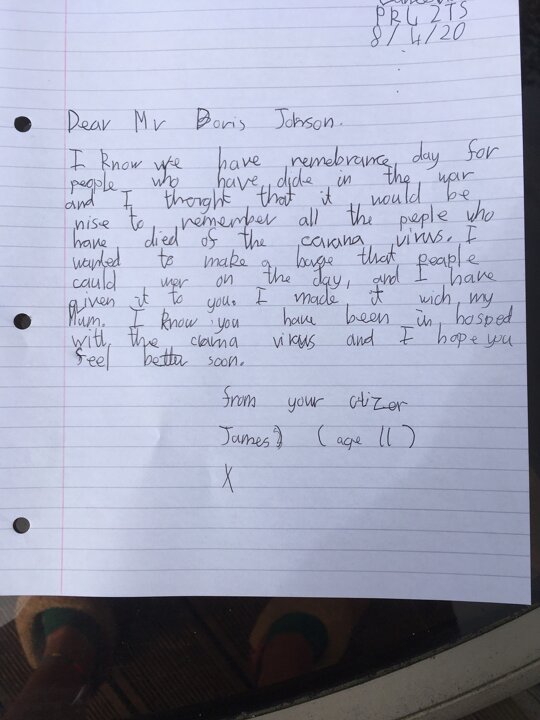 PR4 2TS
8/4/20
Dear Mr Boris Johnson.
I know we have remebrance day for
people who have dide in the war
and I thorght that it would be
nise to remember all the peple who
have died of the carana virus. I
wanted to make a bage that peaple
cauld wer on the day, and I have
given it to you. I made it wich my
Mum. I know you have been in hosped
with the clarna virus and I hope you
feel better soon.
from your citizer
James (age 11)
X